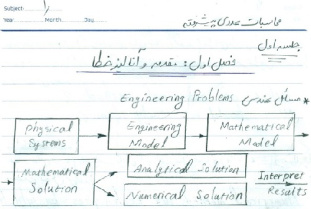 Subject:
Year. Month. Day.
محاسبات عددی پیشرفته
جلسه اول
فصل اول: مقدمه و آنالیز خطا
* مسائل مهندسی Engineering Problems
Physical Systems
Engineering Model
Mathematical Model
Mathematical Solution
Analytical Solution
Numerical Solution
Interpret Results